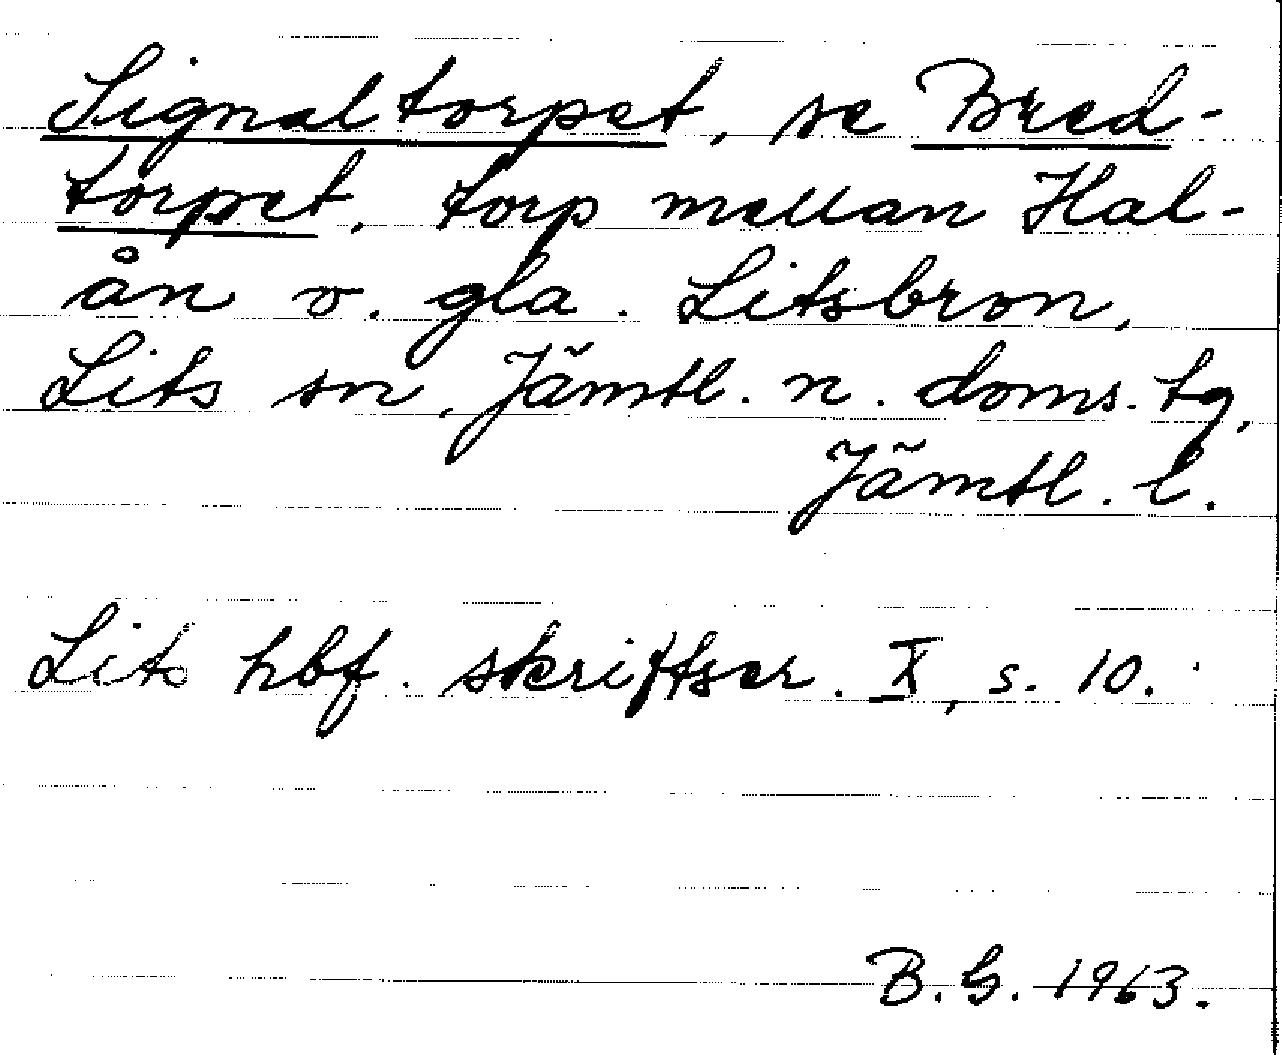 Signaltorpet, se Bred-
torpet, torp mellan Hal-
ån o. gla. Litsbron,
Lits sn, Jämtl. n. doms. tg,
Jämtl. l.
Lits hbf. skriftser. X, s. 10.
B. G. 1963.